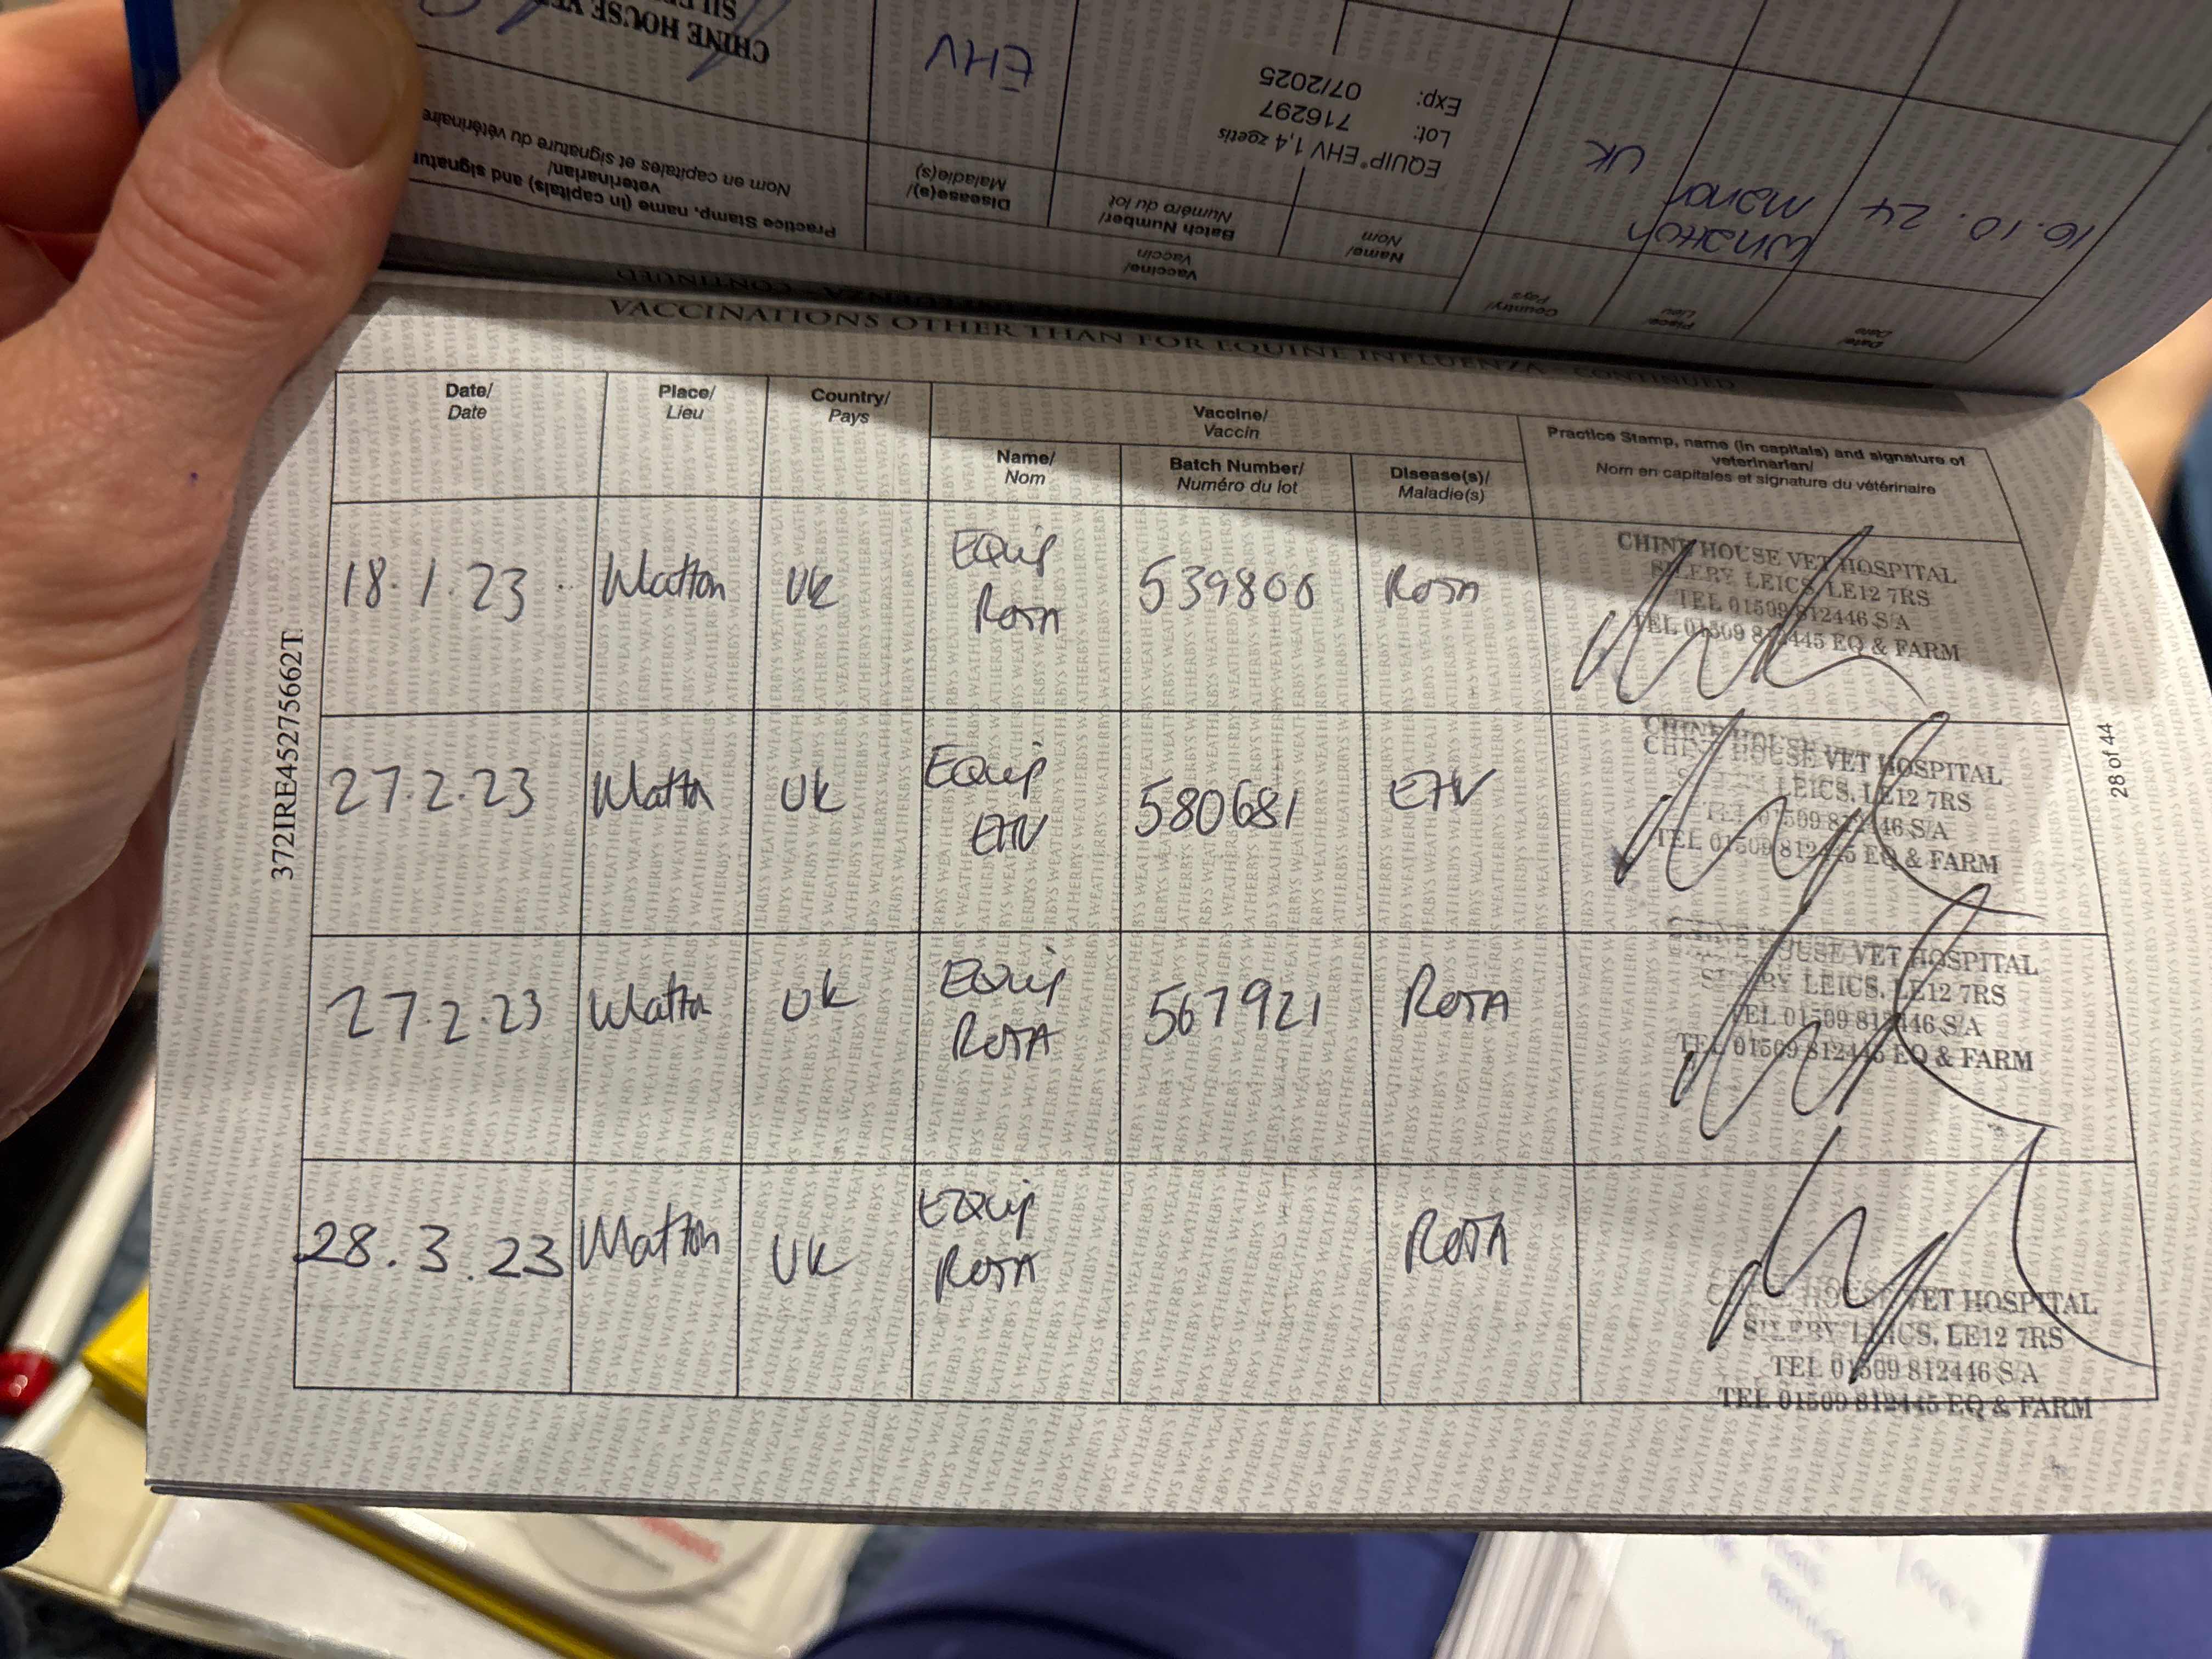 CHINE HOUSE VE
EHV
EQUIP® EHV 1,4 zoetis
Lot: 716297
Exp: 07/2025
UK
Whatton
Manor
16.10.24
Practice Stamp, name (in capitals) and signatur
veterinarian/
Nom en capitales et signature du vétérinaire
Disease(s)/
Maladie(s)
Batch Number/
Numéro du lot
Name/
Nom
Vaccine/
Vaccin
Country/
Pays
Place/
Lieu
Date/
Date
VACCINATIONS OTHER THAN FOR EQUINE INFLUENZA – CONTINUED
Date/
Date
Place/
Lieu
Country/
Pays
Vaccine/
Vaccin
Name/
Nom
Batch Number/
Numéro du lot
Disease(s)/
Maladie(s)
Practice Stamp, name (in capitals) and signature of
veterinarian/
Nom en capitales et signature du vétérinaire
18.1.23 Watton UK Equip Rota 539806 Rota
CHINE HOUSE VET HOSPITAL
SILEBY LEICS, LE12 7RS
TEL 01509 812446 S/A
TEL 01509 812445 EQ & FARM
27.2.23 Watton UK Equip EHV 580681 EHV
CHINE HOUSE VET HOSPITAL
LEICS, LE12 7RS
TEL 01509 812446 S/A
TEL 01509 812445 EQ & FARM
27.2.23 Watton UK Equip Rota 567921 Rota
CHINE HOUSE VET HOSPITAL
SILEBY LEICS, LE12 7RS
TEL 01509 812446 S/A
TEL 01509 812445 EQ & FARM
28.3.23 Watton UK Equip Rota Rota
CHINE HOUSE VET HOSPITAL
SILEBY LEICS, LE12 7RS
TEL 01509 812446 S/A
TEL 01509 812445 EQ & FARM
372IRE45275662T
28 of 44